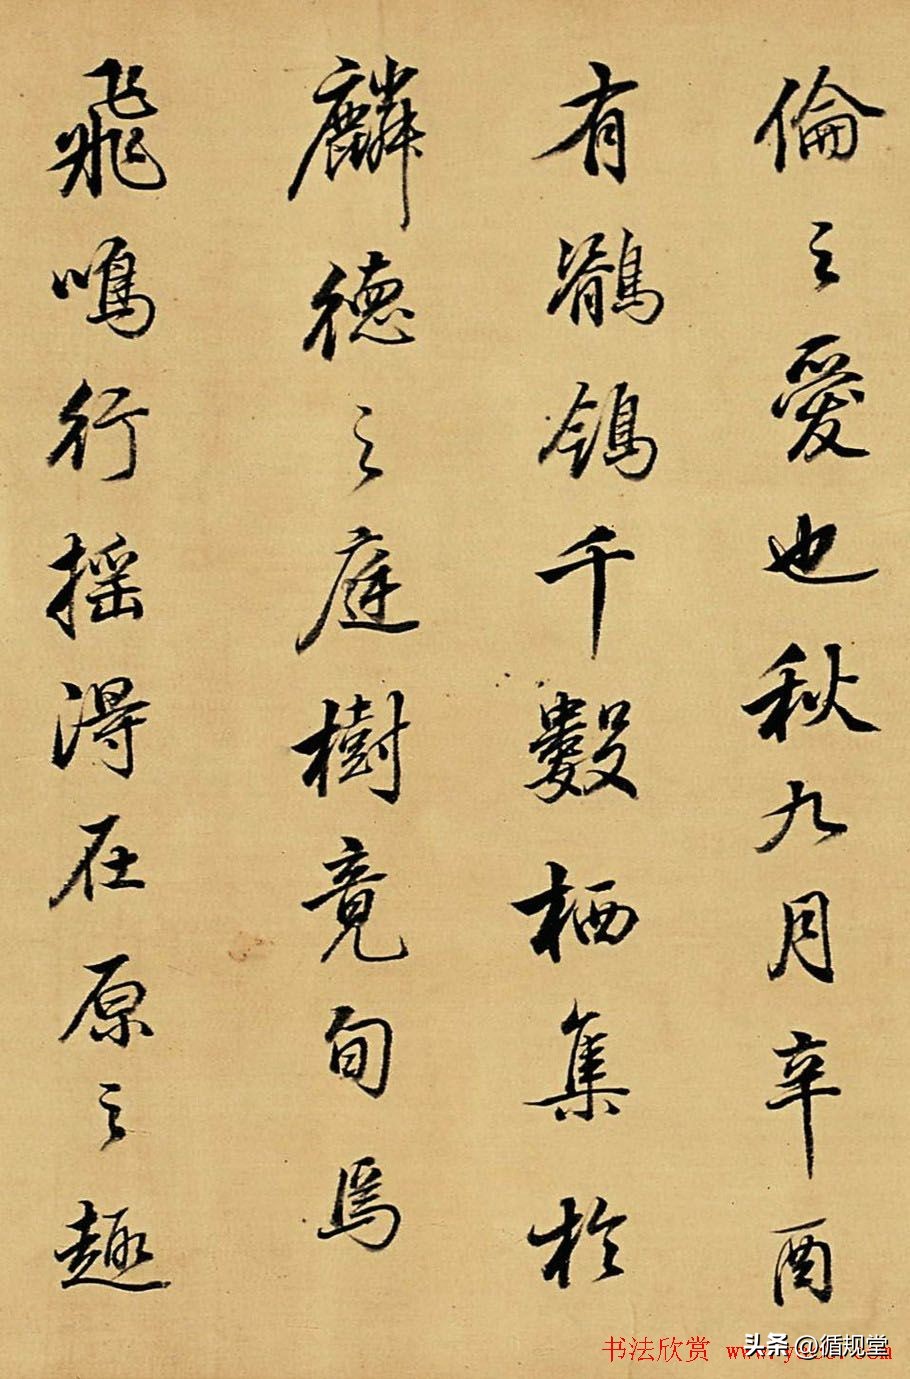 倫之愛也秋九月辛酉
有鶺鴒千數栖集於
麟德之庭樹竟旬焉
飛鳴行搖得在原之趣
书法欣赏
头条@循规堂